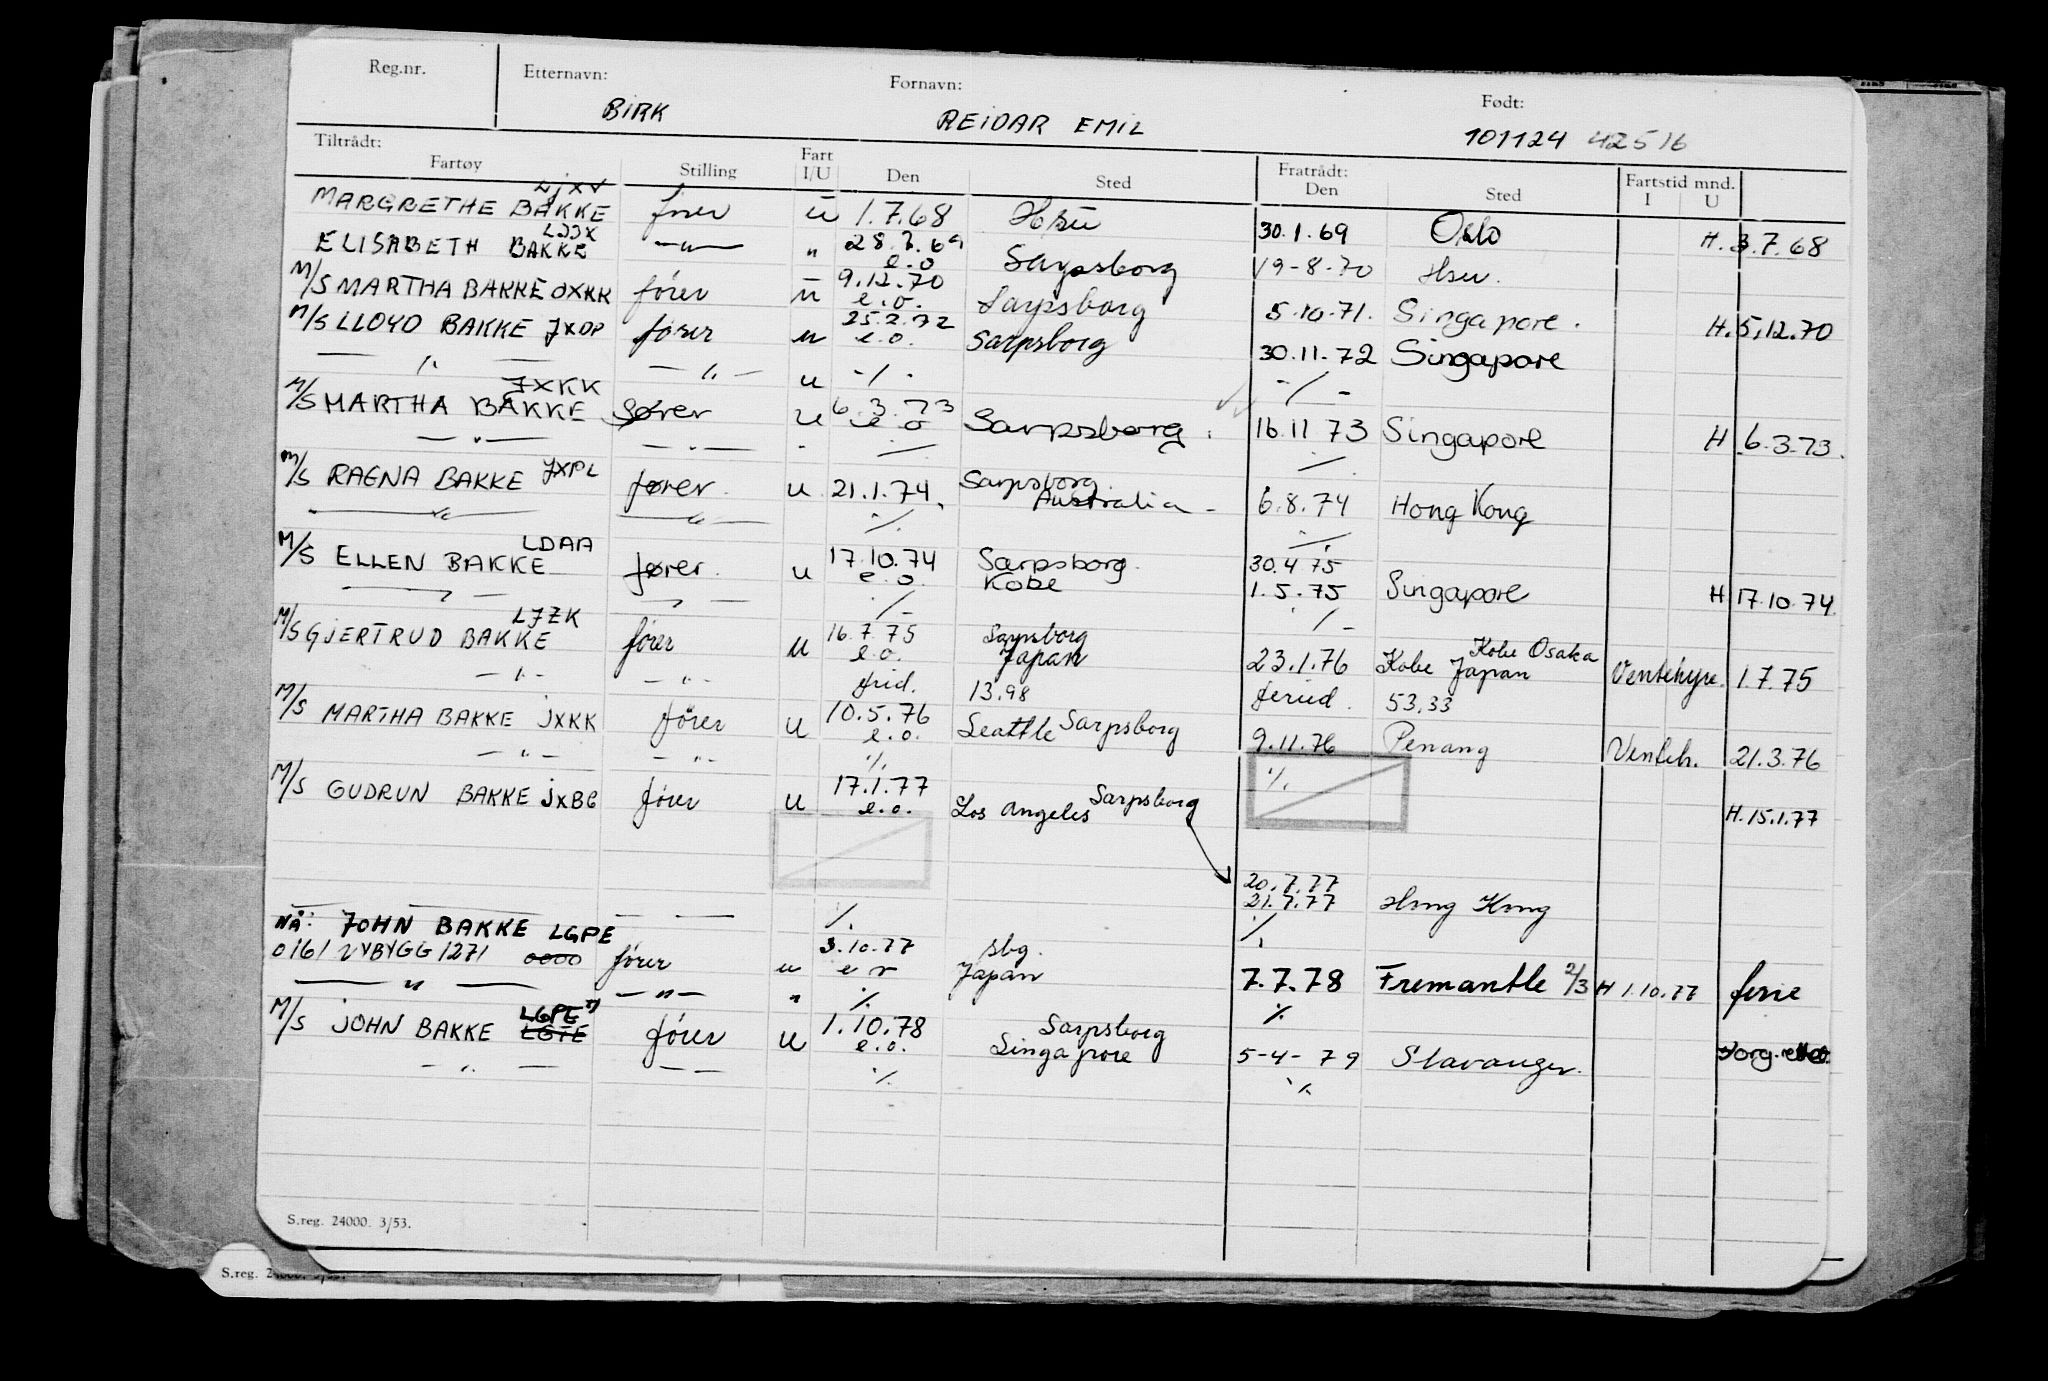 Reg.nr. Etternavn: Fornavn: Født:
BIRK REIDAR EMIL 101124 42516
Tiltrådt: Fratrådt:
Fartøy Stilling Fart I/U Den Sted Den Sted Fartstid mnd. I U
LJXV
MARGRETHE BAKKE fører u 1.7.68 Hsu 30.1.69 Oslo H. 3.7.68
LJJX
ELISABETH BAKKE —"— " 28.7.69 e.o Sarpsborg 19-8-70 Hsu.
M/S MARTHA BAKKE OXKK fører u 9.12.70 e.o. Sarpsborg 5.10.71. Singapore. H. 5.12.70
M/S LLOYD BAKKE JXOP fører u 25.2.72 e.o. Sarpsborg 30.11.72 Singapore
— " — — " — u -/- -/-
JXKK
M/S MARTHA BAKKE fører u 6.3.73 e o Sarpsborg. 16.11 73 Singapore H 6.3.73.
— " — — " — - -/- -/-
M/S RAGNA BAKKE JXPL fører. u 21.1.74. Sarpsborg. Australia - 6.8.74 Hong Kong
— " — — " — -/. -/.
LDAA
M/S ELLEN BAKKE fører. u 17.10.74 Sarpsborg. 30.4 75
e.o. Kobe 1.5.75 Singapore H 17.10.74.
— " — — " — -/- -/-
LJZK
M/S GJERTRUD BAKKE fører u 16.7.75 Sarpsborg
e.o. Japan 23.1.76 Kobe Japan Kobe Osaka Ventehyre. 1.7.75
— " — — " — frid. 13.98 feriud. 53,33
M/S MARTHA BAKKE JXKK fører u 10.5.76 e.o. Seattle Sarpsborg 9.11.76 Penang Venteh. 21.3.76
— " — — " — ./. ./.
M/S GUDRUN BAKKE JXBG fører u 17.1.77 e.o. Los Angeles Sarpsborg H. 15.1.77
20.7.77
21.7.77 Hong Kong
— — — — ./. ./.
NÅ: JOHN BAKKE LGPE 3.10.77 sbg.
0161 NYBYGG 1271 0000 fører u e o Japan 7.7.78 Fremantle 2/3 H 1.10.77 ferie
— " — — " — " ./. ./.
M/S JOHN BAKKE LGPE LGTE fører u 1.10.78 e.o. Sarpsborg Singapore 5-4-79 Stavanger.
— " — — — ./. ./.
S.reg. 24000. 3/53.
S.reg.